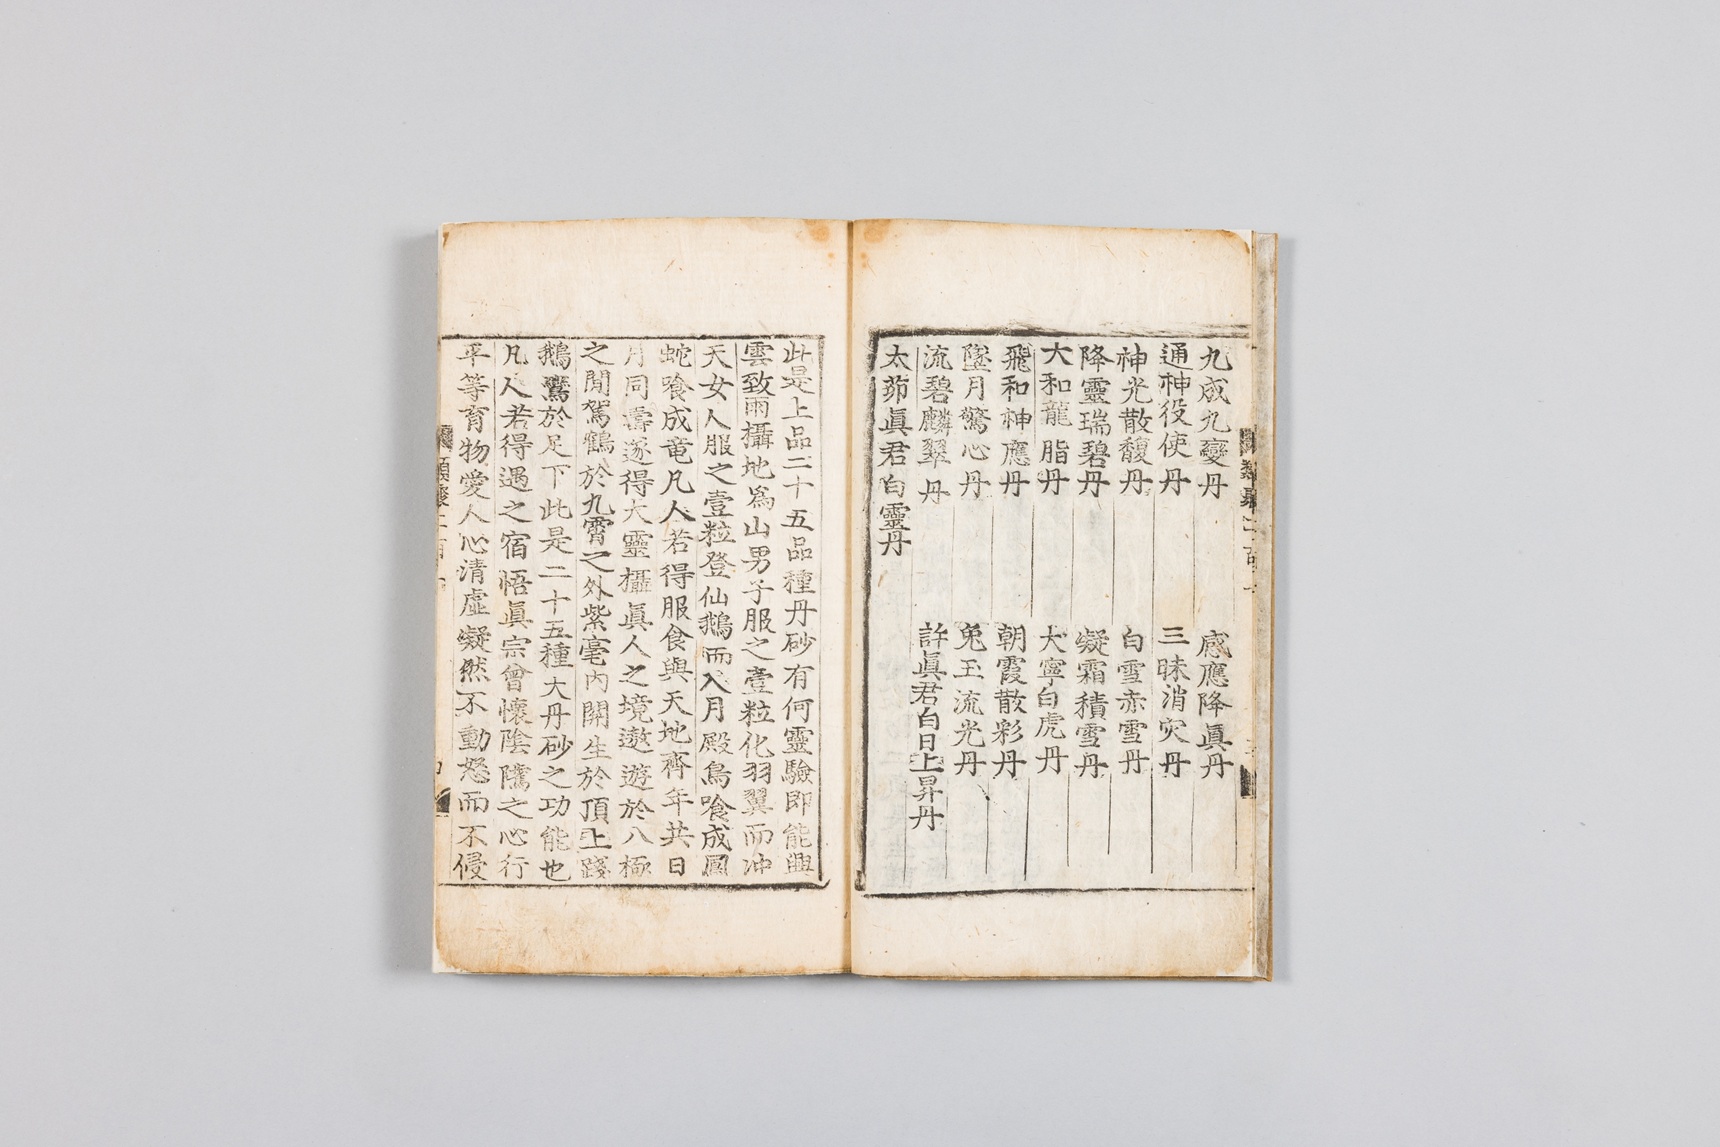 九成九變丹 感應降眞丹
通神役使丹 三昧消灾丹
神光散馥丹 白雪赤雪丹
降靈瑞碧丹 凝霜積雪丹
大和龍脂丹 大寧白虎丹
飛和神應丹 朝霞散彩丹
墜月驚心丹 兎玉流光丹
流碧麟翠丹 許眞君白日上昇丹
太茆眞君白靈丹
此是上品二十五品種丹砂有何靈驗即能興
雲致雨攝地爲山男子服之壹粒化羽翼而沖
天女人服之壹粒登仙鵝而入月殿鳥喰成鳳
蛇喰成竜凡人若得服食與天地齊年共日
月同壽遂得大靈攝眞人之境遨遊於八極
之閒駕鶴於九霄之外紫毫内開生於頂上踐
鵝鸞於足下此是二十五種大丹砂之功能也
凡人若得遇之宿悟眞宗曾懷陰隲之心行
平等育物愛人心清虛凝然不動怒而不侵